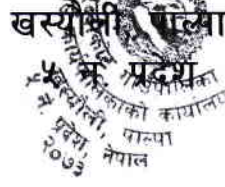 खस्यौली, पाल्पा
५ नं प्रदेश
गाउँपालिका
कार्यपालिकाको कार्यालय
खस्यौली, पाल्पा
५ नं. प्रदेश, नेपाल
२०७३